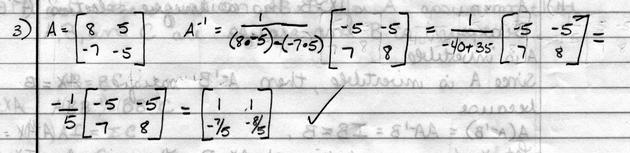 3) A = [8 5; -7 -5] A⁻¹ = 1/((8·-5)-(-7·5)) [-5 -5; 7 8] = 1/(-40+35) [-5 -5; 7 8] =
-1/5 [-5 -5; 7 8] = [1 1; -7/5 -8/5] ✓